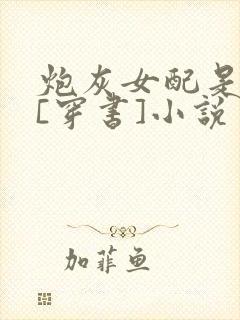 炮灰女配是
[穿书]小說
加菲鱼